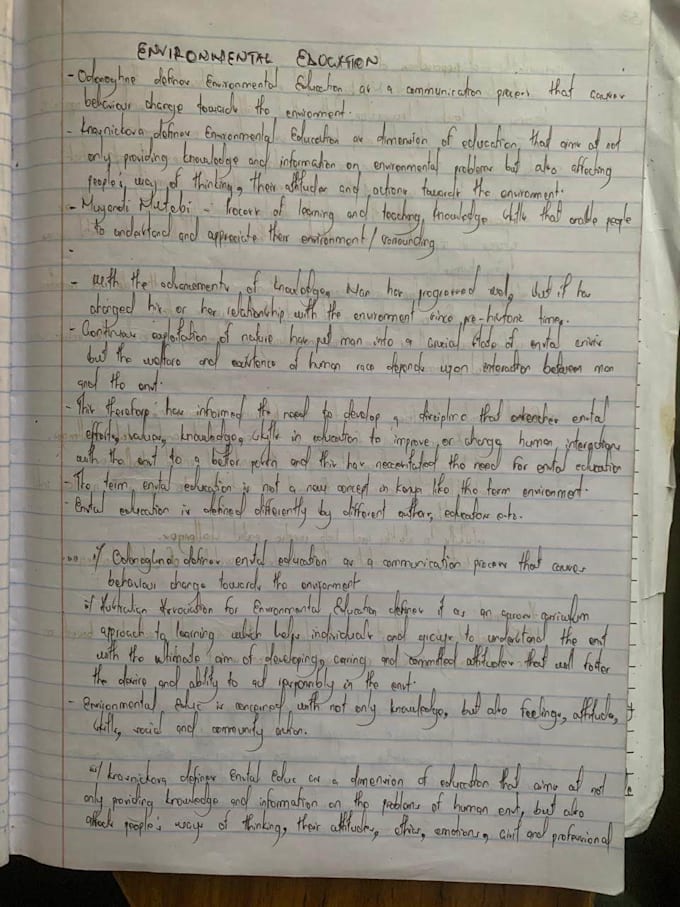 ENVIRONMENTAL EDUCATION
- defines Environmental Education as a communication process that causes
behaviour change towards the environment.
- defines Environmental Education as dimension of education, that aims at not
only providing knowledge and information on environmental problems but also affecting
people's way of thinking, their attitudes and actions towards the environment.
- Mugandi Mutebi - Process of learning and teaching, knowledge skills that enable people
to understand and appreciate their environment/
-
- With the advancements of knowledge, Man has progressed well, but it has
changed his or her relationship with the environment since pre-historic times.
- Continuous exploitation of nature have put man into a crucial state of envtal crisis
but the welfare and existence of human race depends upon interaction between man
and the envt.
- This therefore has informed the need to develop a discipline that envtal
efforts, values, knowledge, skills in education to improve or change human interactions
with the envt to a better and this has necessitated the need for envtal education
- The term envtal education is not a new concept in Kenya like the term environment.
- Envtal education is defined differently by different author, educators e.t.c.
i/ defines envtal education as a communication process that causes
behaviour change towards the environment
ii/ Australian Association for Environmental Education defines it as an across curriculum
approach to learning which helps individuals and groups to understand the envt
with the ultimate aim of developing, caring and committed attitudes that will foster
the desire and ability to act responsibly in the envt.
- Environmental Educ is concerned with not only knowledge, but also feelings, attitude,
skills, social and community action.
iii/ defines Envtal Educ as a dimension of education that aims at not
only providing knowledge and information on the problems of human envt, but also
people's ways of thinking, their attitudes, ethics, emotions, civil and professional